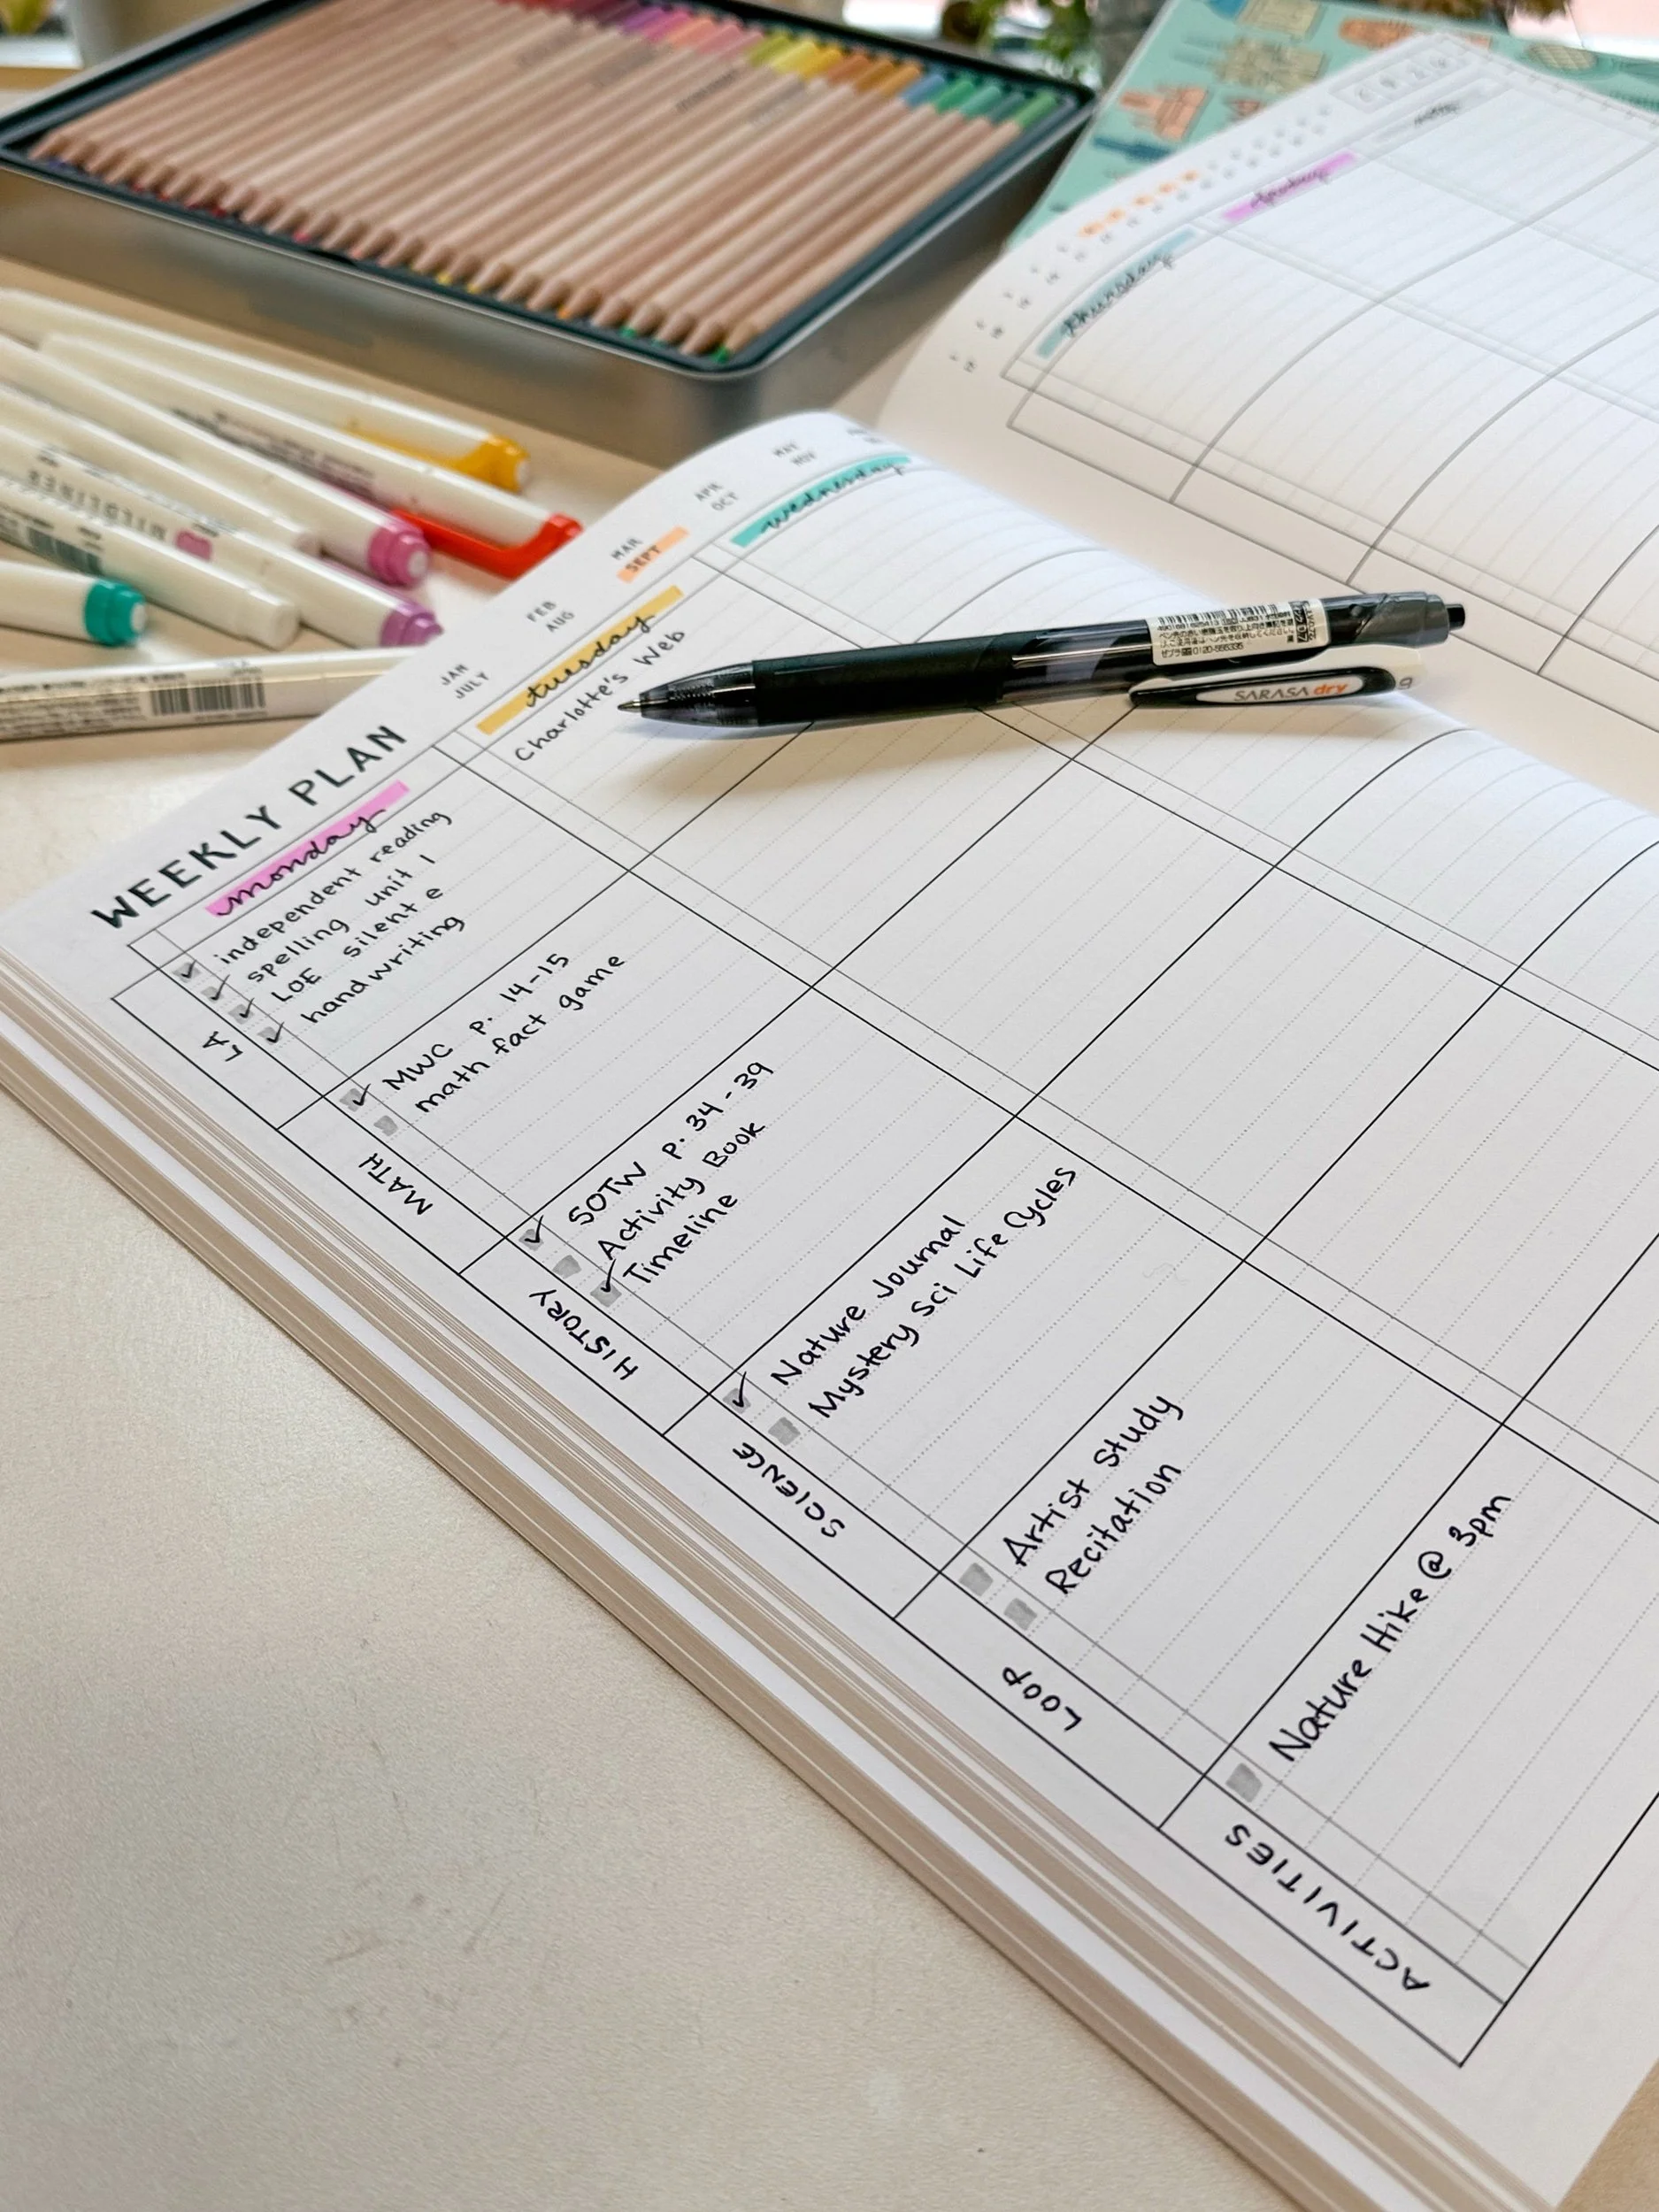 WEEKLY PLAN
JAN
JULY
FEB
AUG
MAR
SEPT
APR
OCT
MAY
NOV
monday
tuesday
wednesday
LA
independent reading
spelling unit 1
LOE silent e
handwriting
Charlotte's Web
MATH
MWC p. 14-15
math fact game
HISTORY
SOTW p. 34-39
Activity Book
Timeline
SCIENCE
Nature Journal
Mystery Sci Life Cycles
LOOP
Artist Study
Recitation
ACTIVITIES
Nature Hike @ 3pm
thursday
friday
SARASA dry
0120-555335
MILDLINER